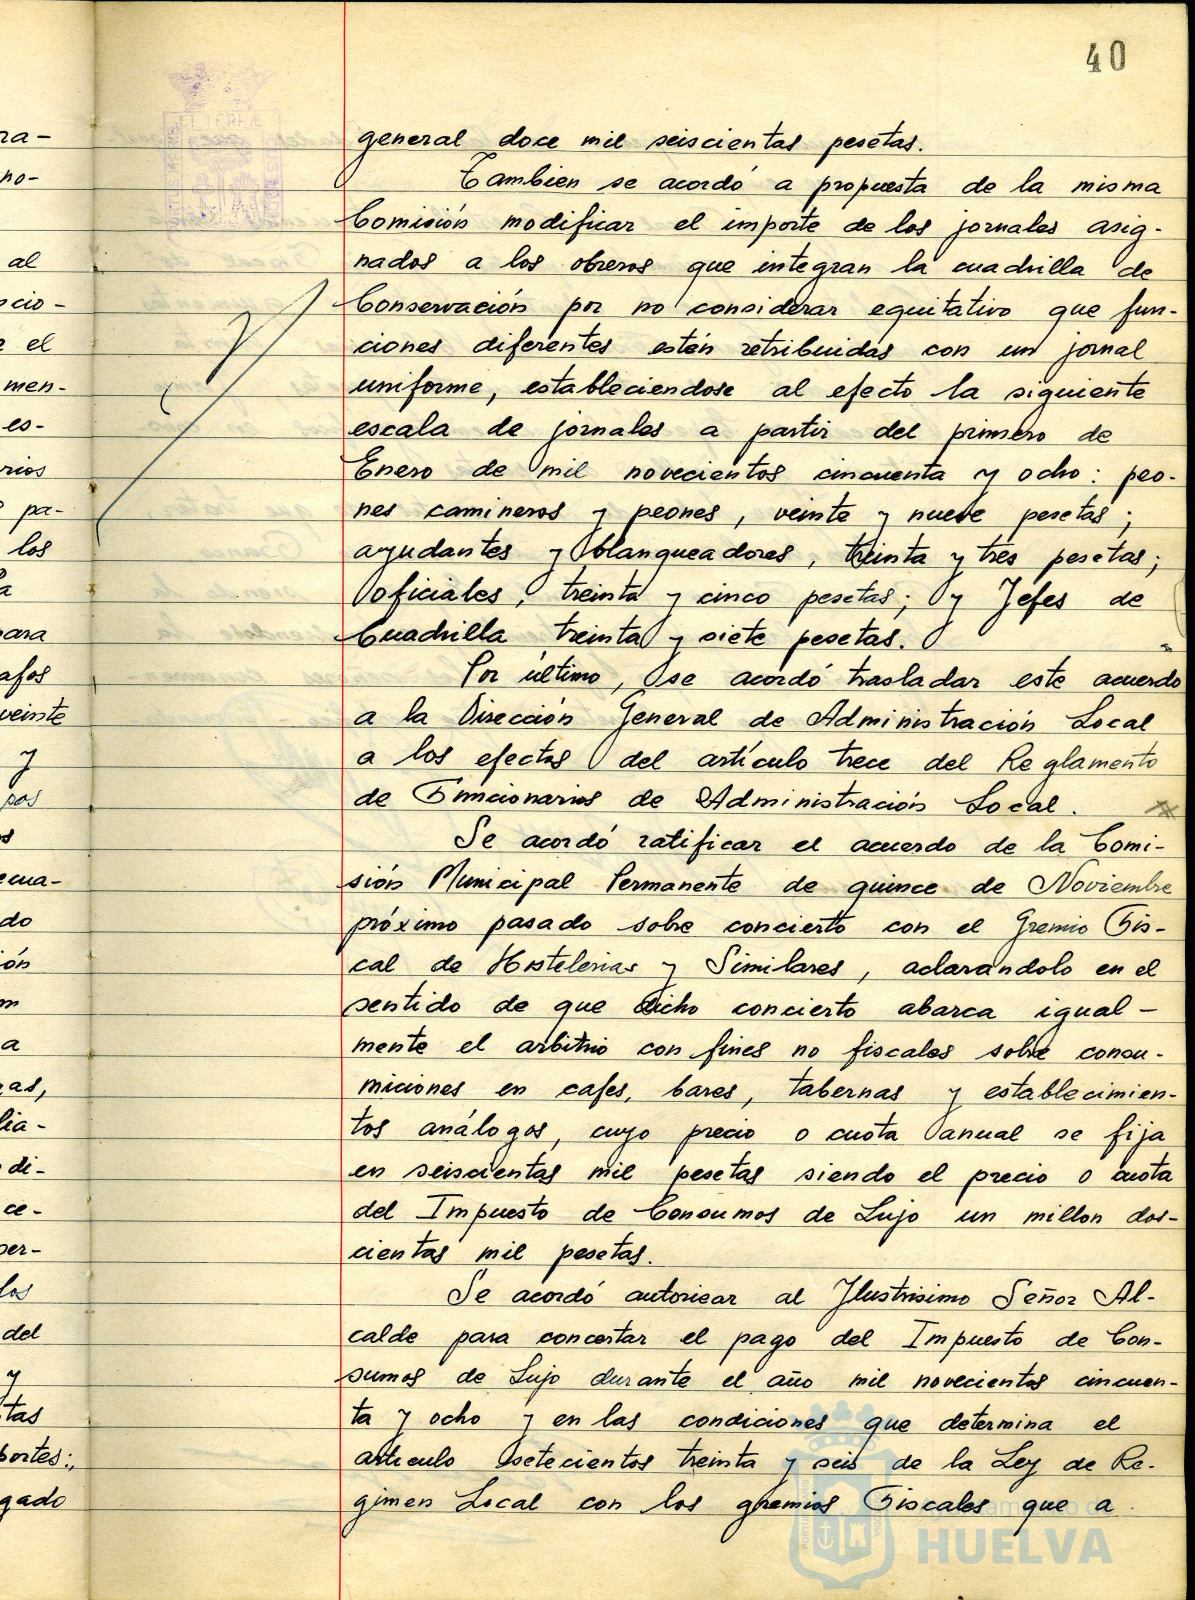 40
general doce mil seiscientas pesetas.
Tambien se acordó a propuesta de la misma
Comisión modificar el importe de los jornales asig-
nados a los obreros que integran la cuadrilla de
Conservación por no considerar equitativo que fun-
ciones diferentes estén retribuidas con un jornal
uniforme, estableciendose al efecto la siguiente
escala de jornales a partir del primero de
Enero de mil novecientos cincuenta y ocho: peo-
nes camineros y peones, veinte y nueve pesetas;
ayudantes y blanqueadores, treinta y tres pesetas;
oficiales, treinta y cinco pesetas; y Jefes de
Cuadrilla treinta y siete pesetas.
Por último, se acordó trasladar este acuerdo
a la Dirección General de Administración Local
a los efectos del artículo trece del Reglamento
de Funcionarios de Administración Local.
Se acordó ratificar el acuerdo de la Comi-
sión Municipal Permanente de quince de Noviembre
próximo pasado sobre concierto con el Gremio Fis-
cal de Hostelerias y Similares, aclarandolo en el
sentido de que dicho concierto abarca igual-
mente el arbitrio con fines no fiscales sobre consu-
miciones en cafes, bares, tabernas y establecimien-
tos análogos, cuyo precio o cuota anual se fija
en seiscientas mil pesetas siendo el precio o cuota
del Impuesto de Consumos de Lujo un millon dos-
cientas mil pesetas.
Se acordó autorizar al Ilustrisimo Señor Al-
calde para concertar el pago del Impuesto de Con-
sumos de Lujo durante el año mil novecientos cincuen-
ta y ocho y en las condiciones que determina el
articulo setecientos treinta y seis de la Ley de Re-
gimen Local con los gremios Fiscales que a
ra-
no-
al
cio-
e el
men-
es-
rios
pa-
los
a
para
afos
veinte
y
pos
os
ecua-
do
ión
m
a
ras,
lia-
di-
ce-
per-
los
del
y
tas
portes:,
gado
HUELVA